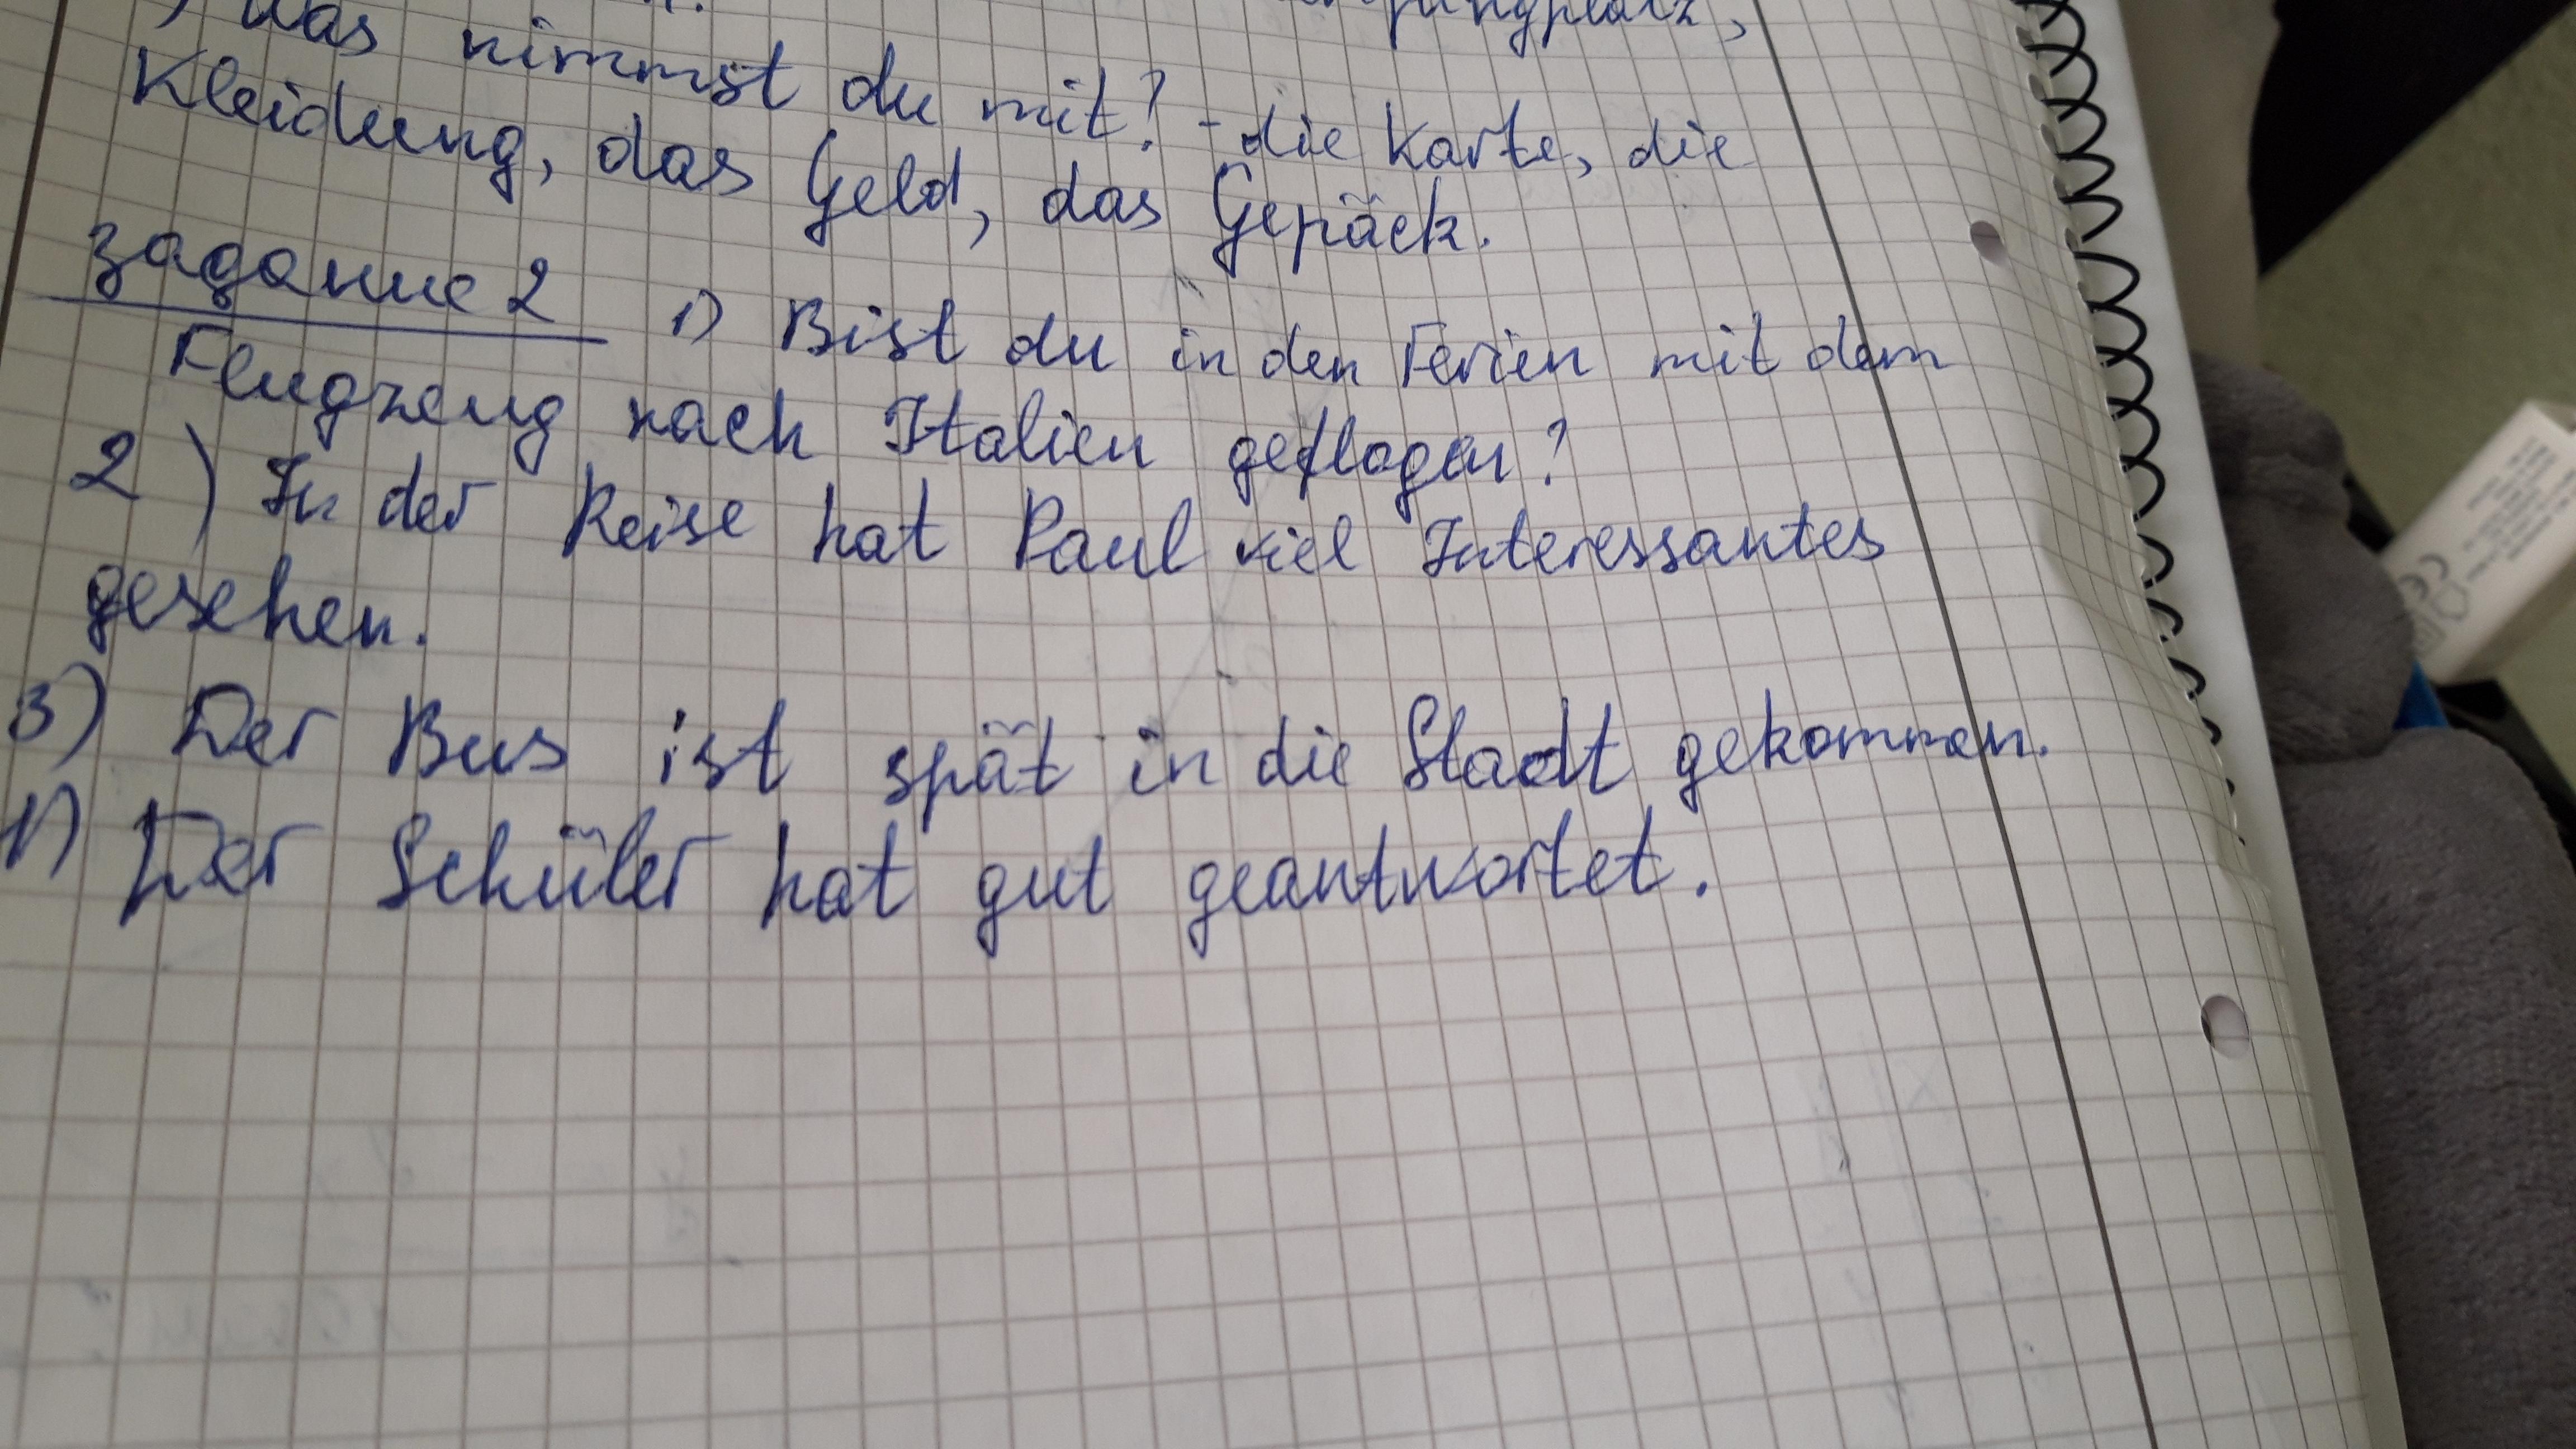 ) Was nimmst du mit? - die Karte, die
Kleidung, das Geld, das Gepäck.
Задание 2 1) Bist du in den Ferien mit dem
Flugzeug nach Italien geflogen?
2) In der Reise hat Paul viel Interessantes
gesehen.
3) Der Bus ist spät in die Stadt gekommen.
1) Der Schüler hat gut geantwortet.